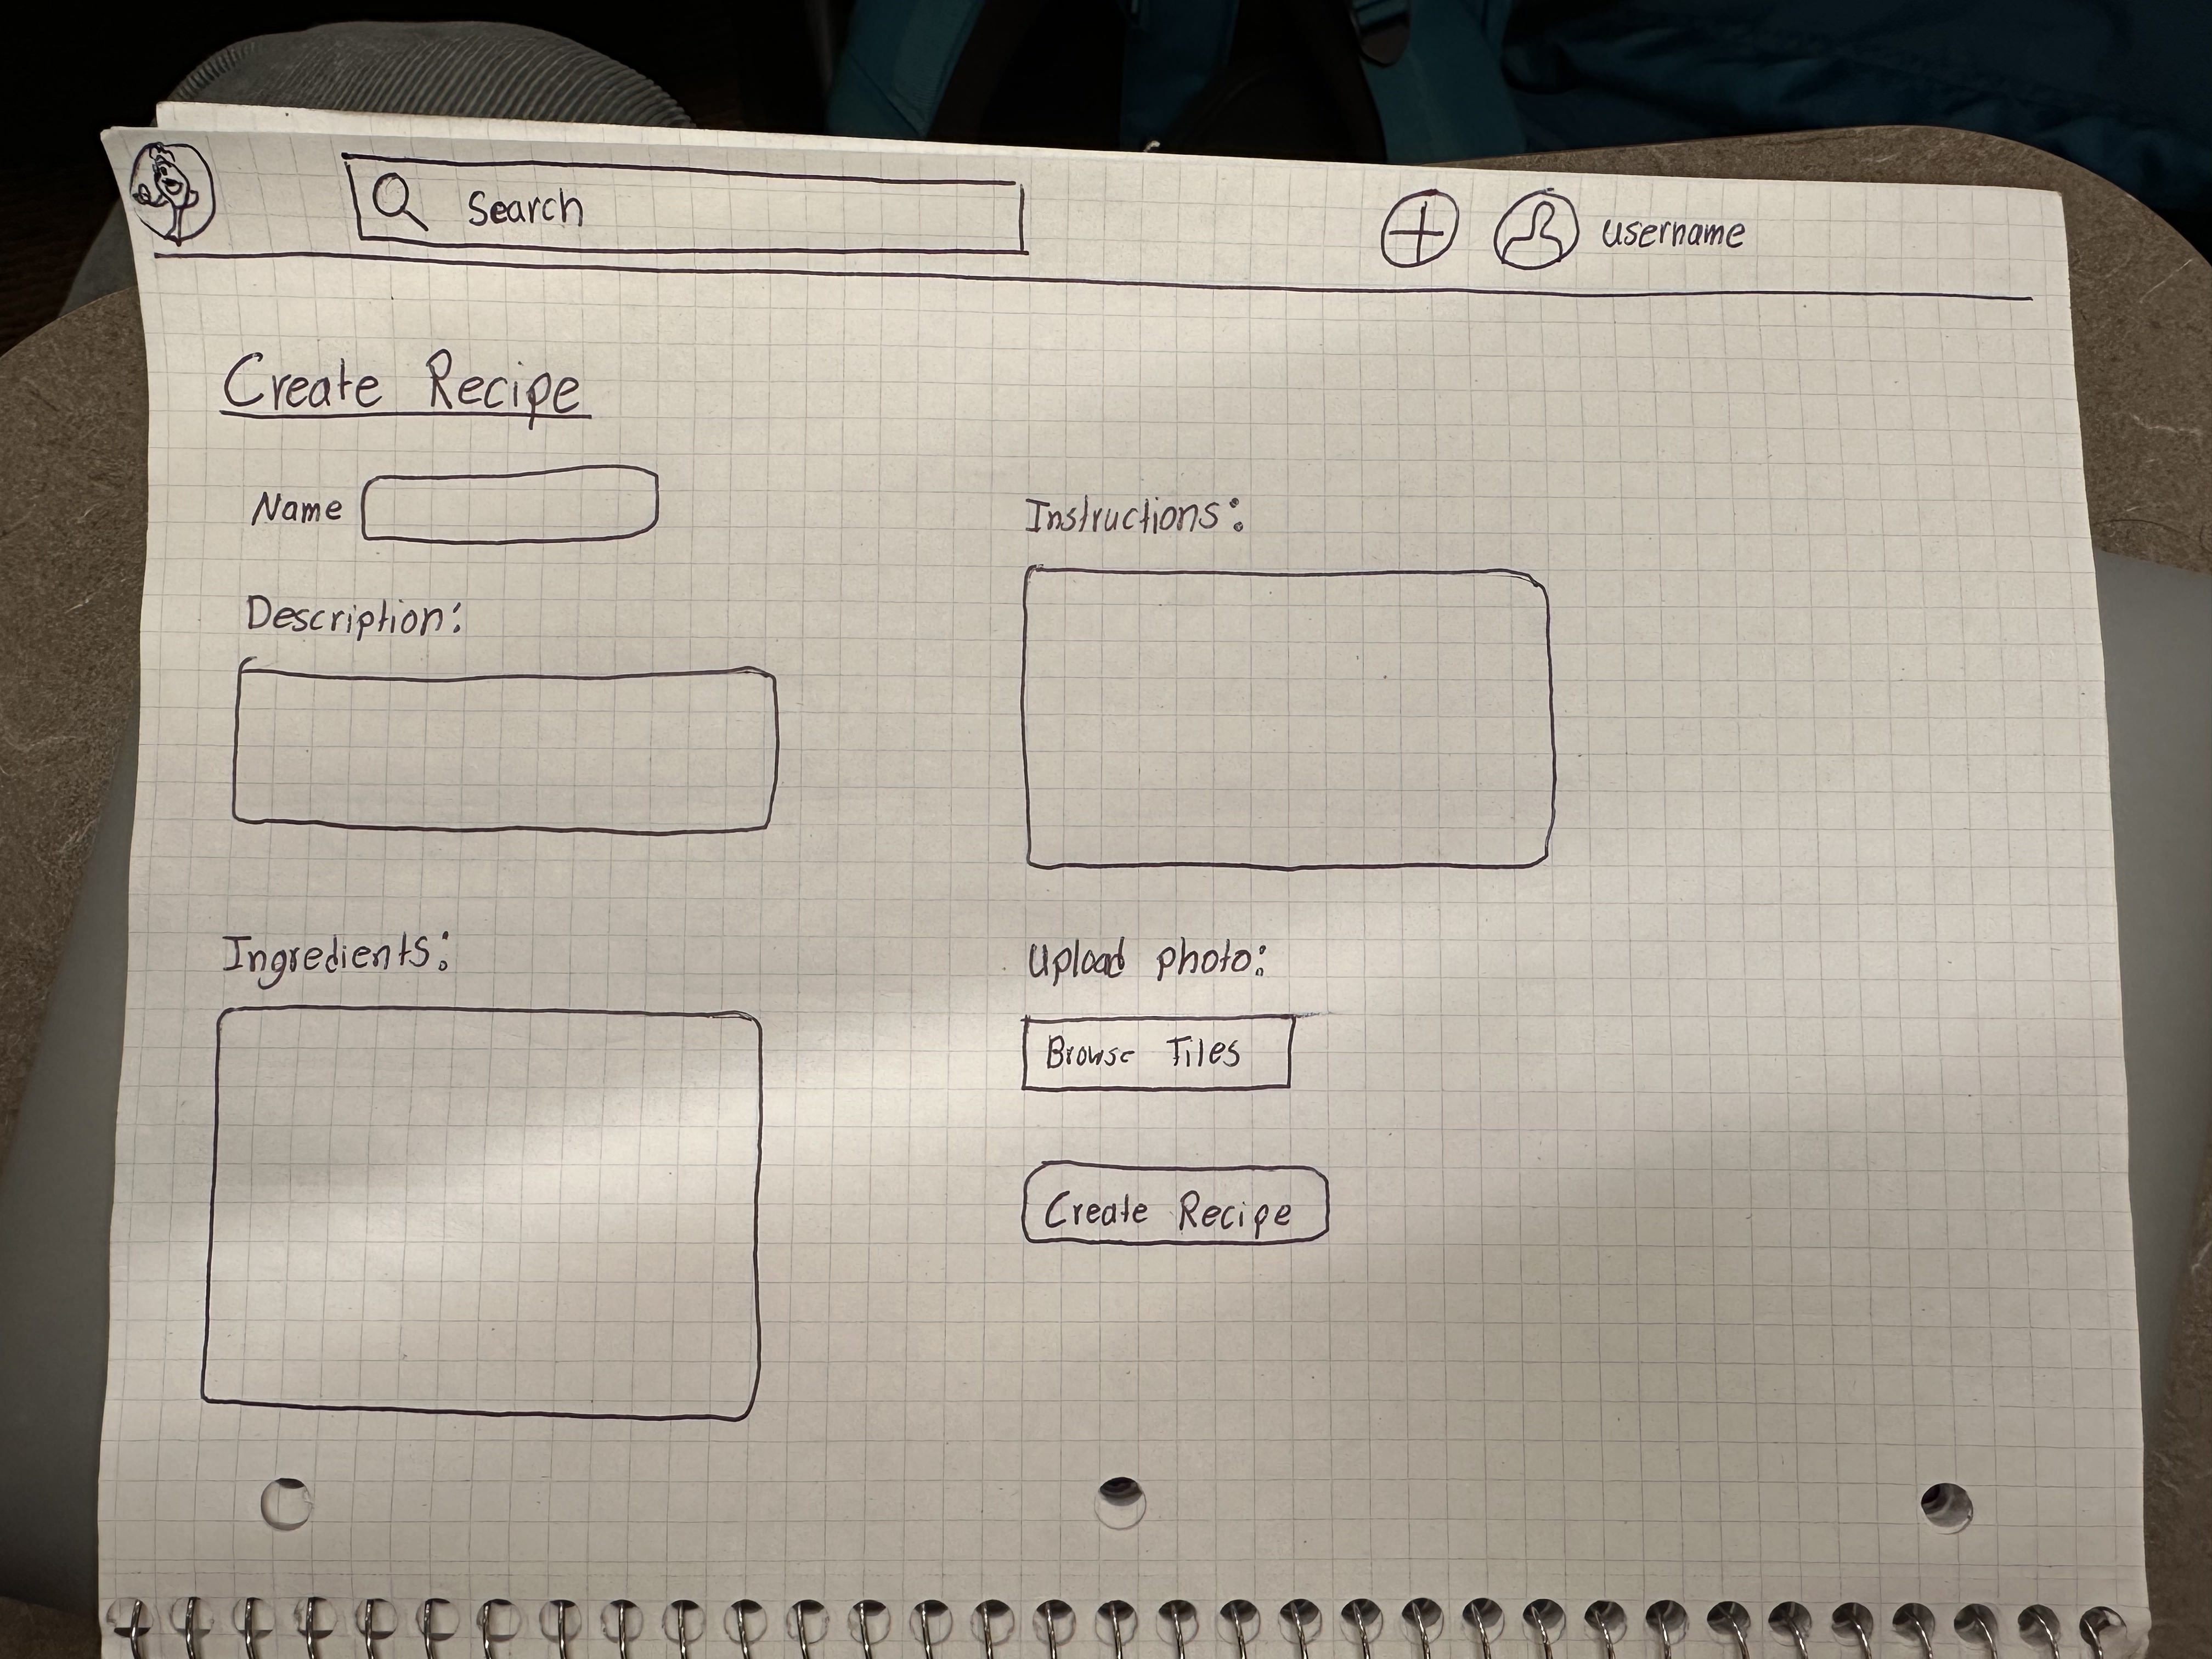 Search
username
Create Recipe
Name
Description:
Ingredients:
Instructions:
Upload photo:
Browse Files
Create Recipe